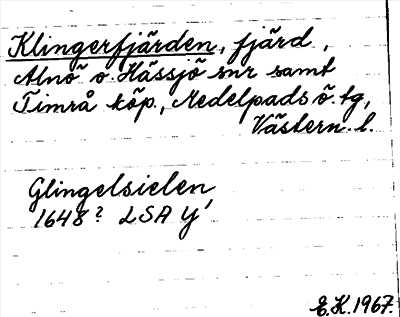 Klingerfjärden, fjärd,
Alnö o. Hässjö snr samt
Timrå köp., Medelpads ö. tg,
Västern. l.
Glingelsielen
1648? LSA Y'
E.K. 1967.